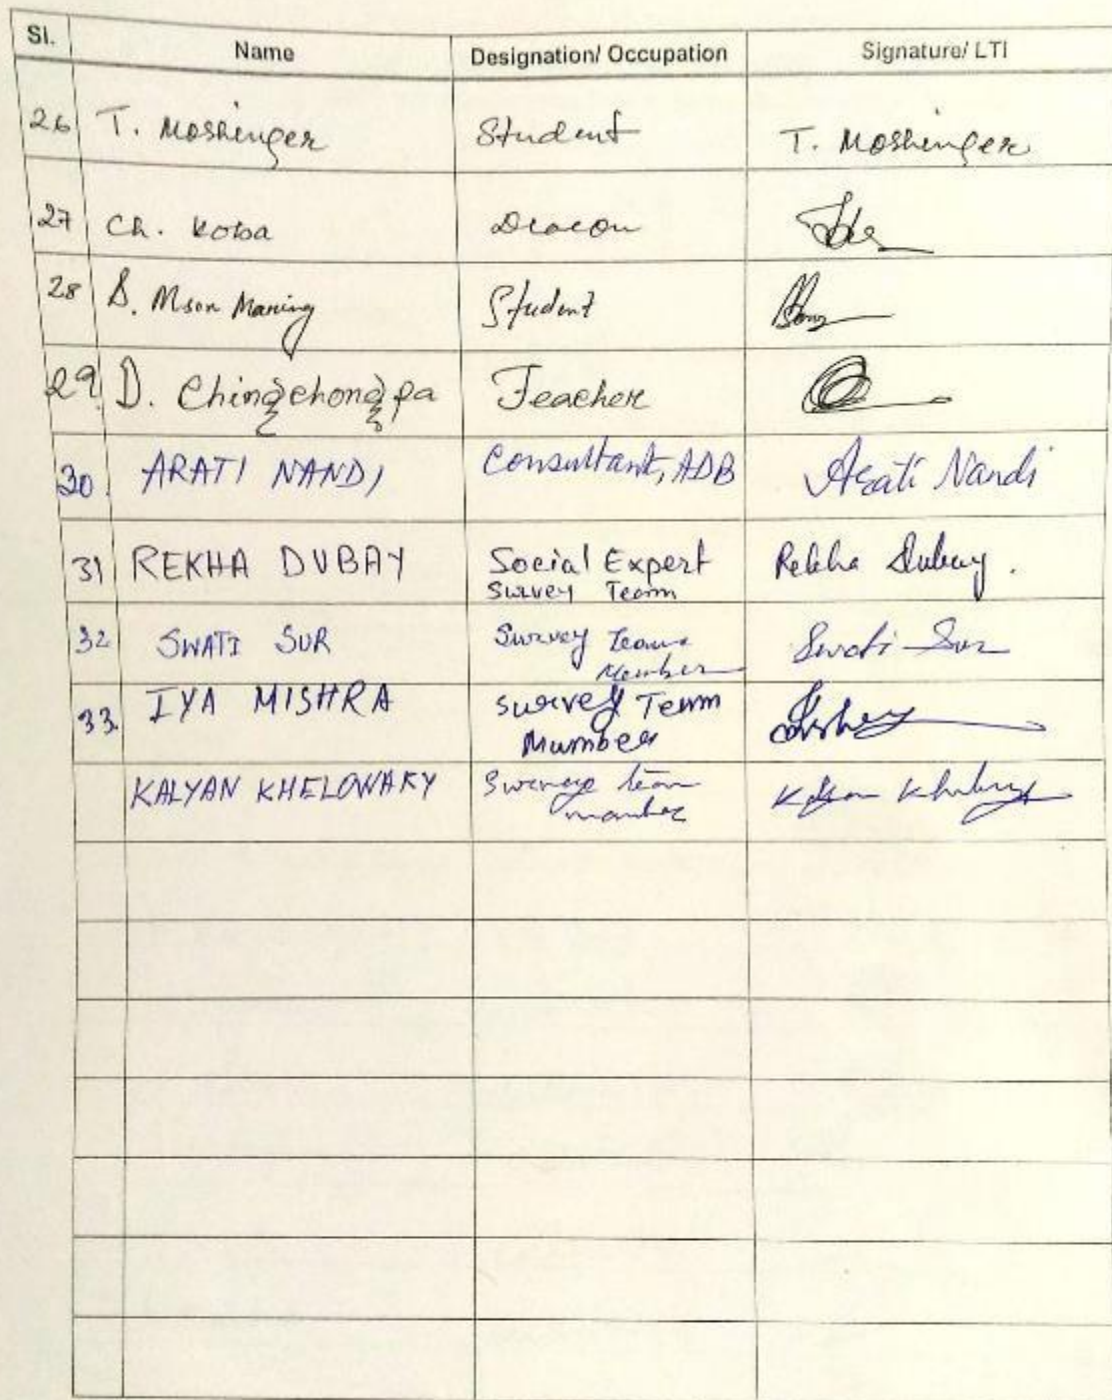 Sl. Name Designation/ Occupation Signature/ LTI
26 T. Moshinger Student T. Moshinger
27 Ch. Koba Deacon
28 S. Mson Maring Student
29. D. Chingchongpa Teacher
30. ARATI NANDI Consultant, ADB Arati Nandi
31 REKHA DUBAY Social Expert Rekha Dubay.
Survey Team
32 SWATI SUR Survey Team Swati Sur
Member
33. IYA MISHRA Survey Team
Mumber
KALYAN KHELOWARY team Kalyan